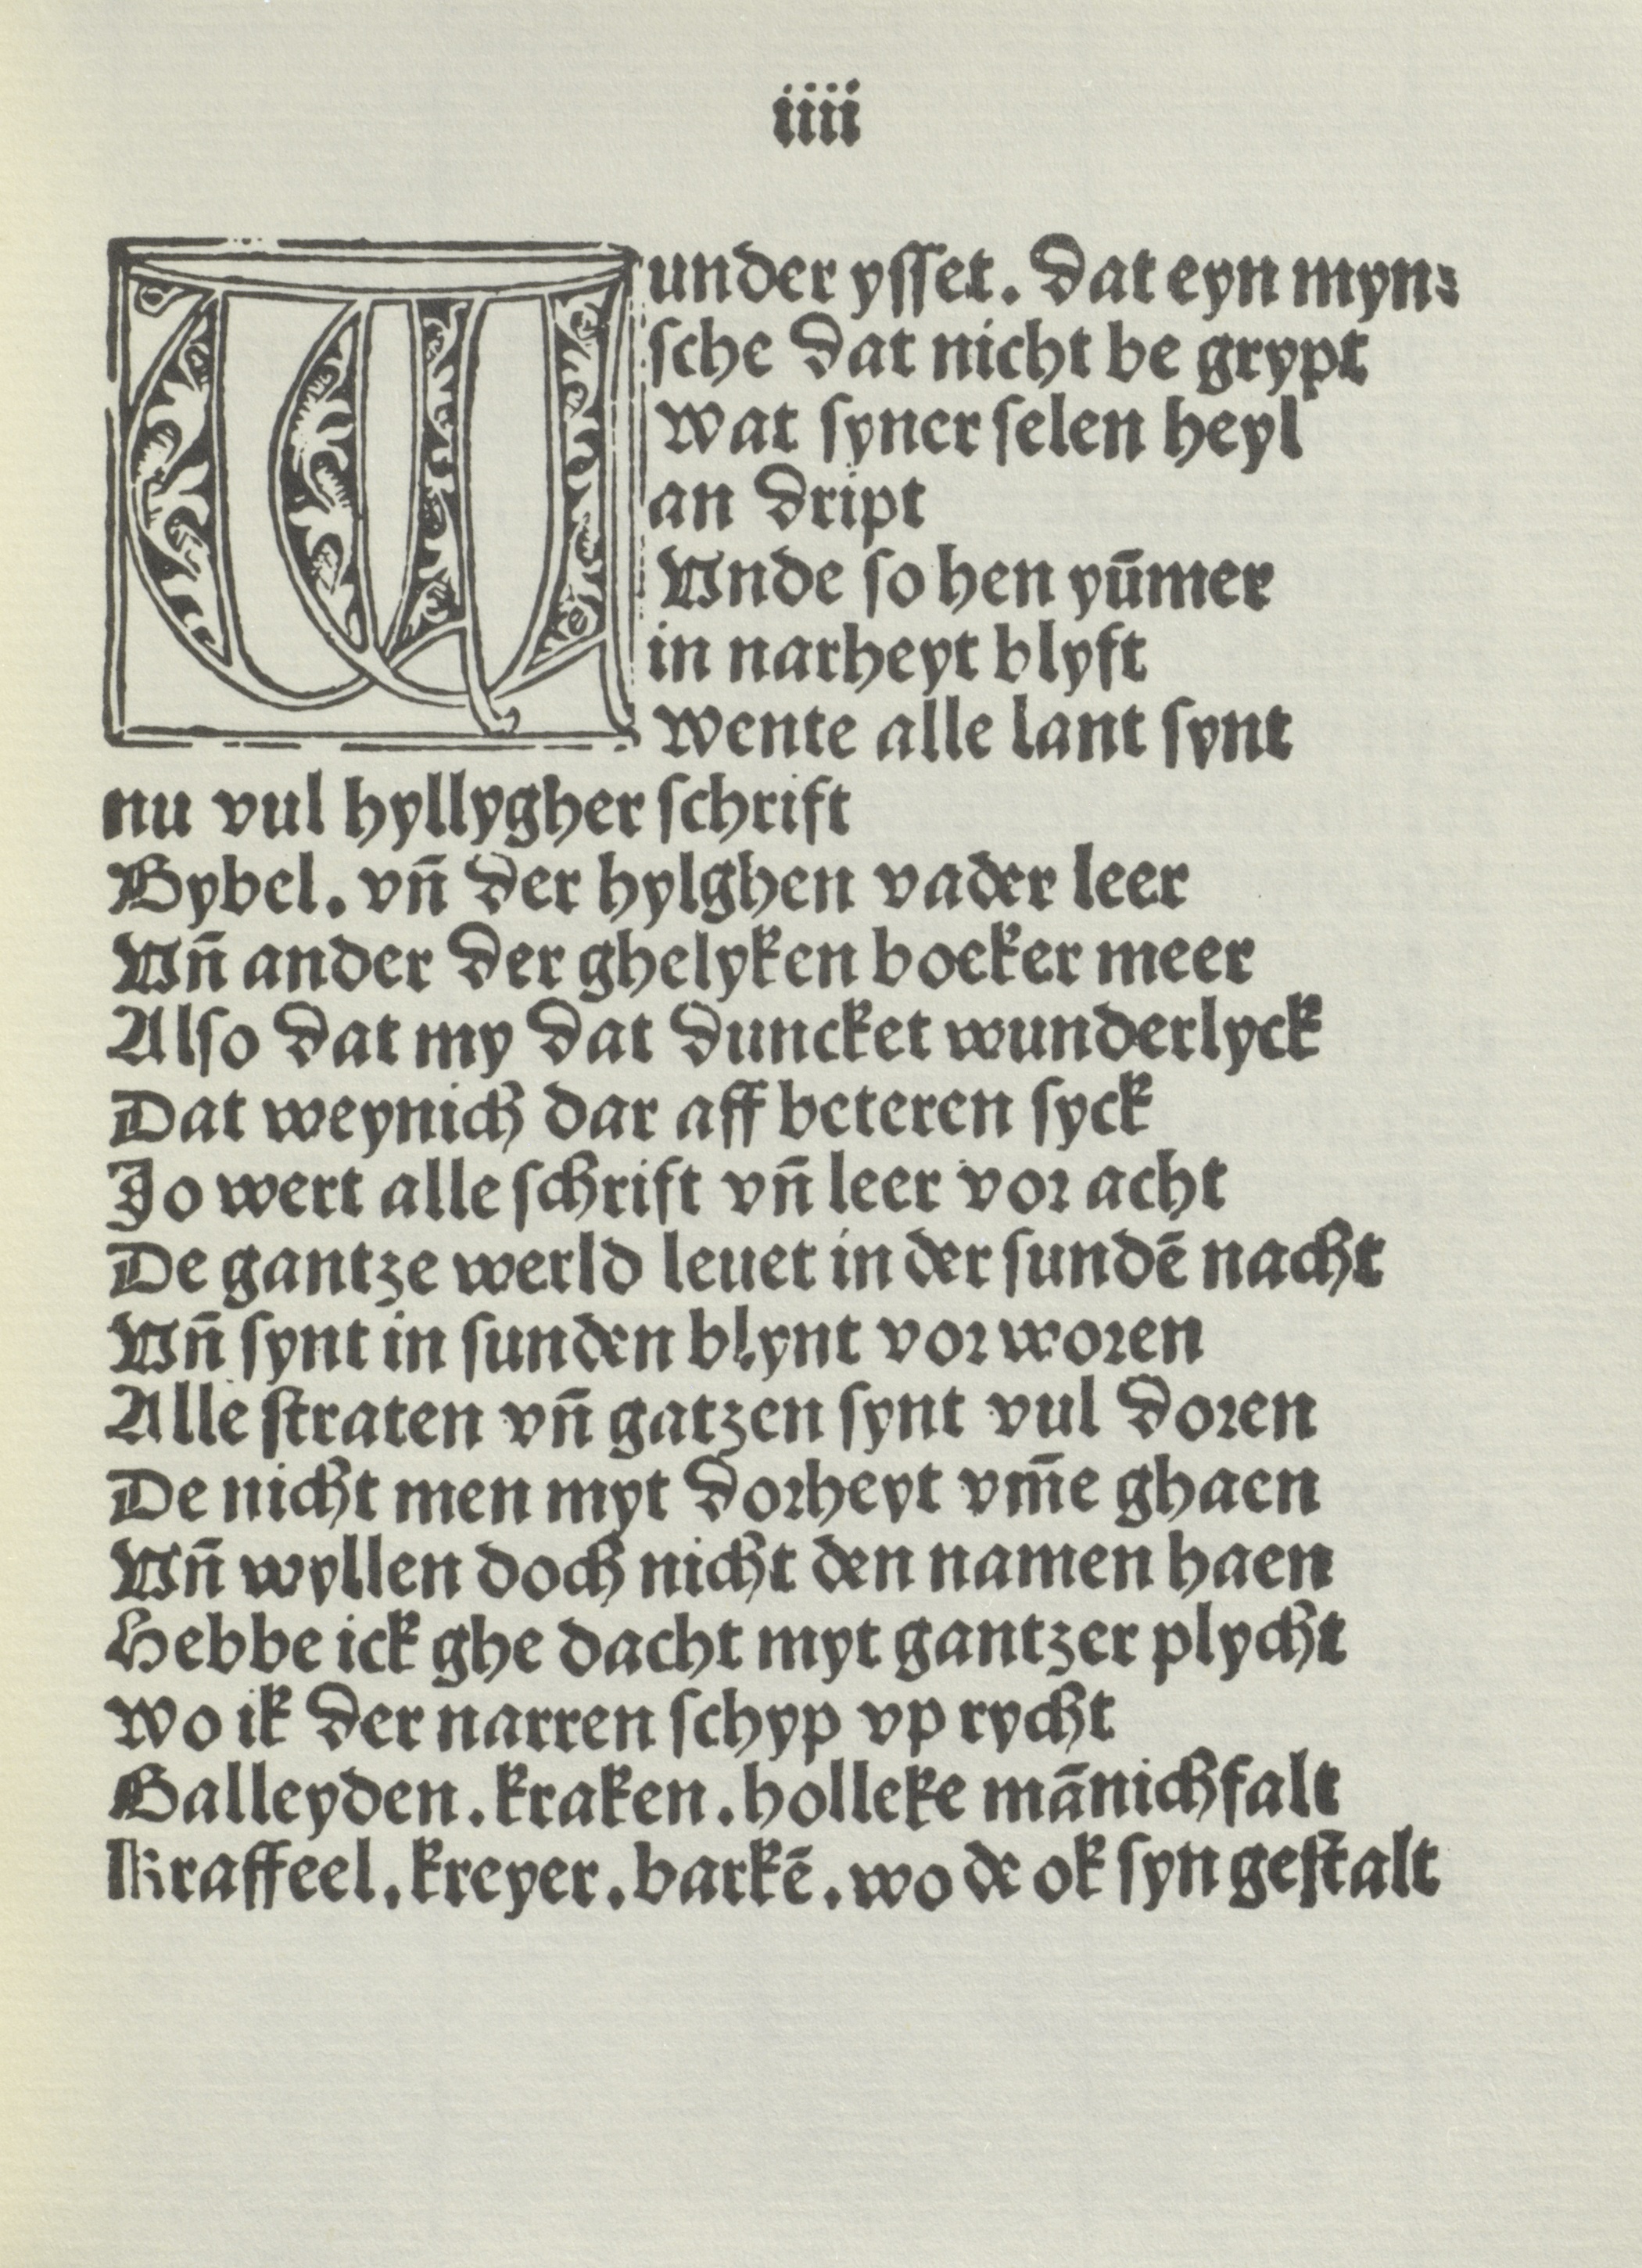 iiii
Wunder ysset. Dat eyn myn⸗
sche dat nicht be grypt
wat syner selen heyl
an dript
Vnde so hen yūmer
in narheyt blyft
wente alle lant synt
nu vul hyllygher schrift
Bybel. vn̄ der hylghen vader leer
Vn̄ ander der ghelyken boeker meer
Also dat my dat duncket wunderlyck
Dat weynich dar aff beteren syck
Jo wert alle schrift vn̄ leer vor acht
De gantze werld leuet in der sundē nacht
Vn̄ synt in sunden blynt vor woren
Alle straten vn̄ gatzen synt vul doren
De nicht men myt dorheyt vm̄e ghaen
Vn̄ wyllen doch nicht den namen haen
Hebbe ick ghe dacht myt gantzer plycht
wo ik der narren schyp vp rycht
Galleyden. kraken. holleke mānichfalt
Kraffeel. kreyer. barkē. wo de ok syn gestalt